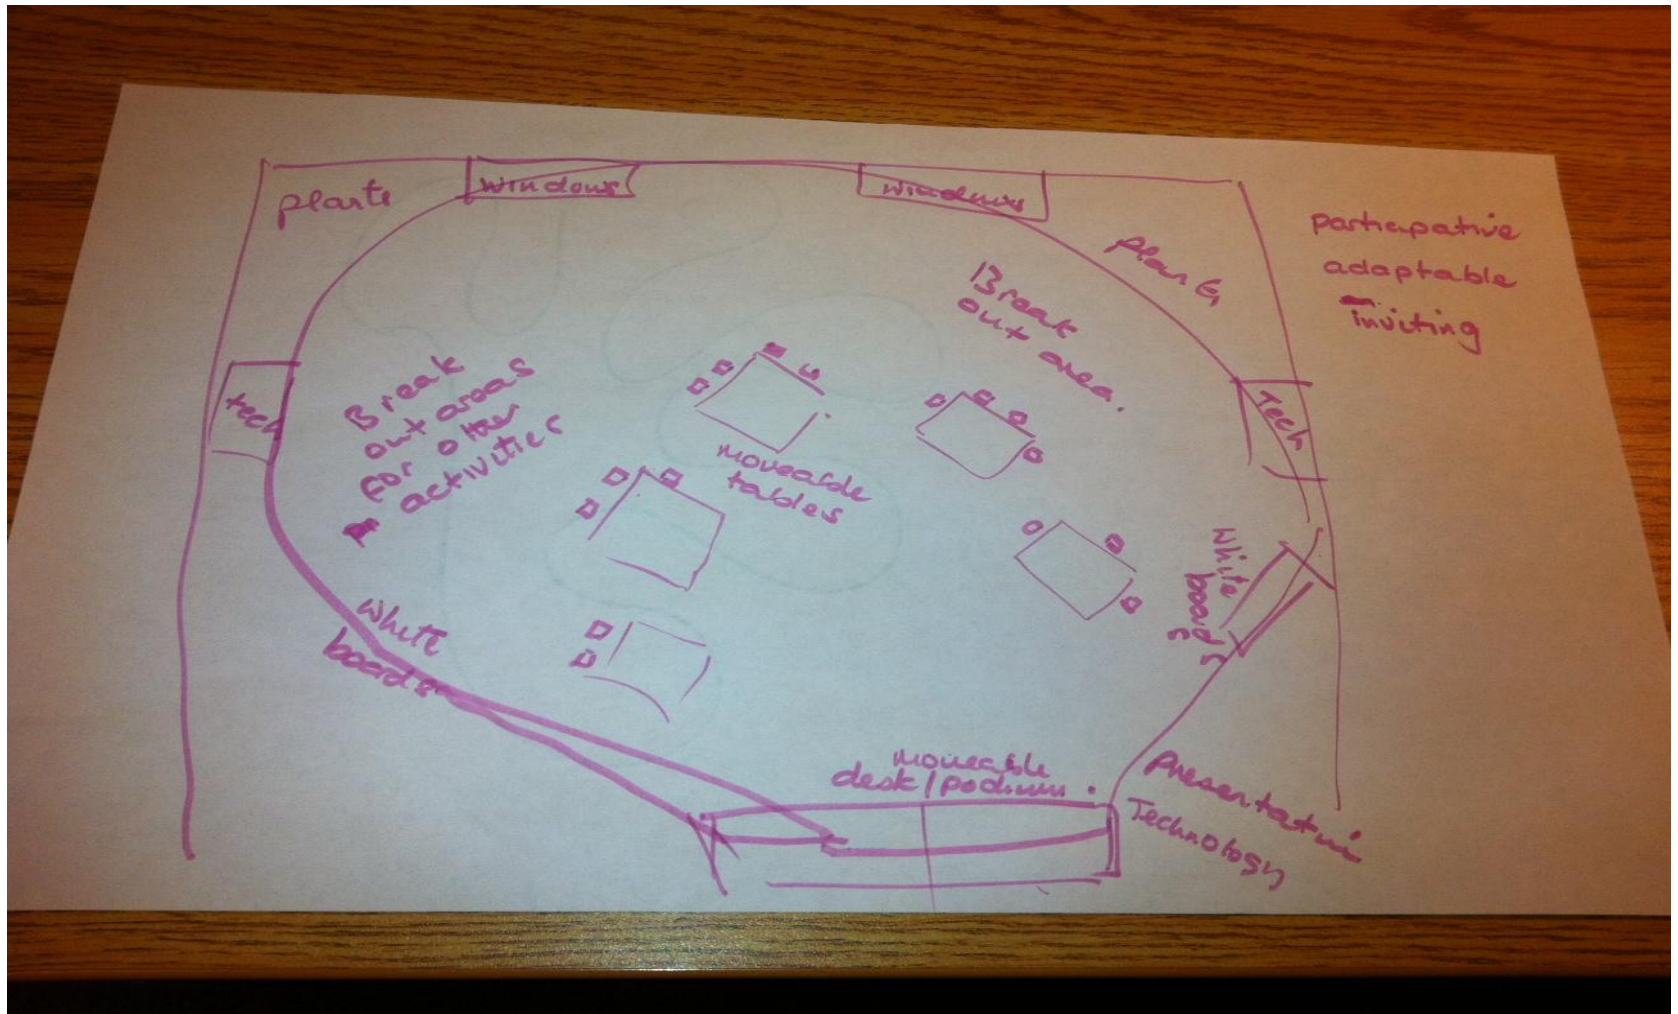 plants
windows
windows
plants
participative
adaptable
inviting
Break
out area.
Break
out areas
for other
activities
tech
Tech
moveable
tables
White
boards
White
boards
moveable
desk/podium.
Presentation
Technology